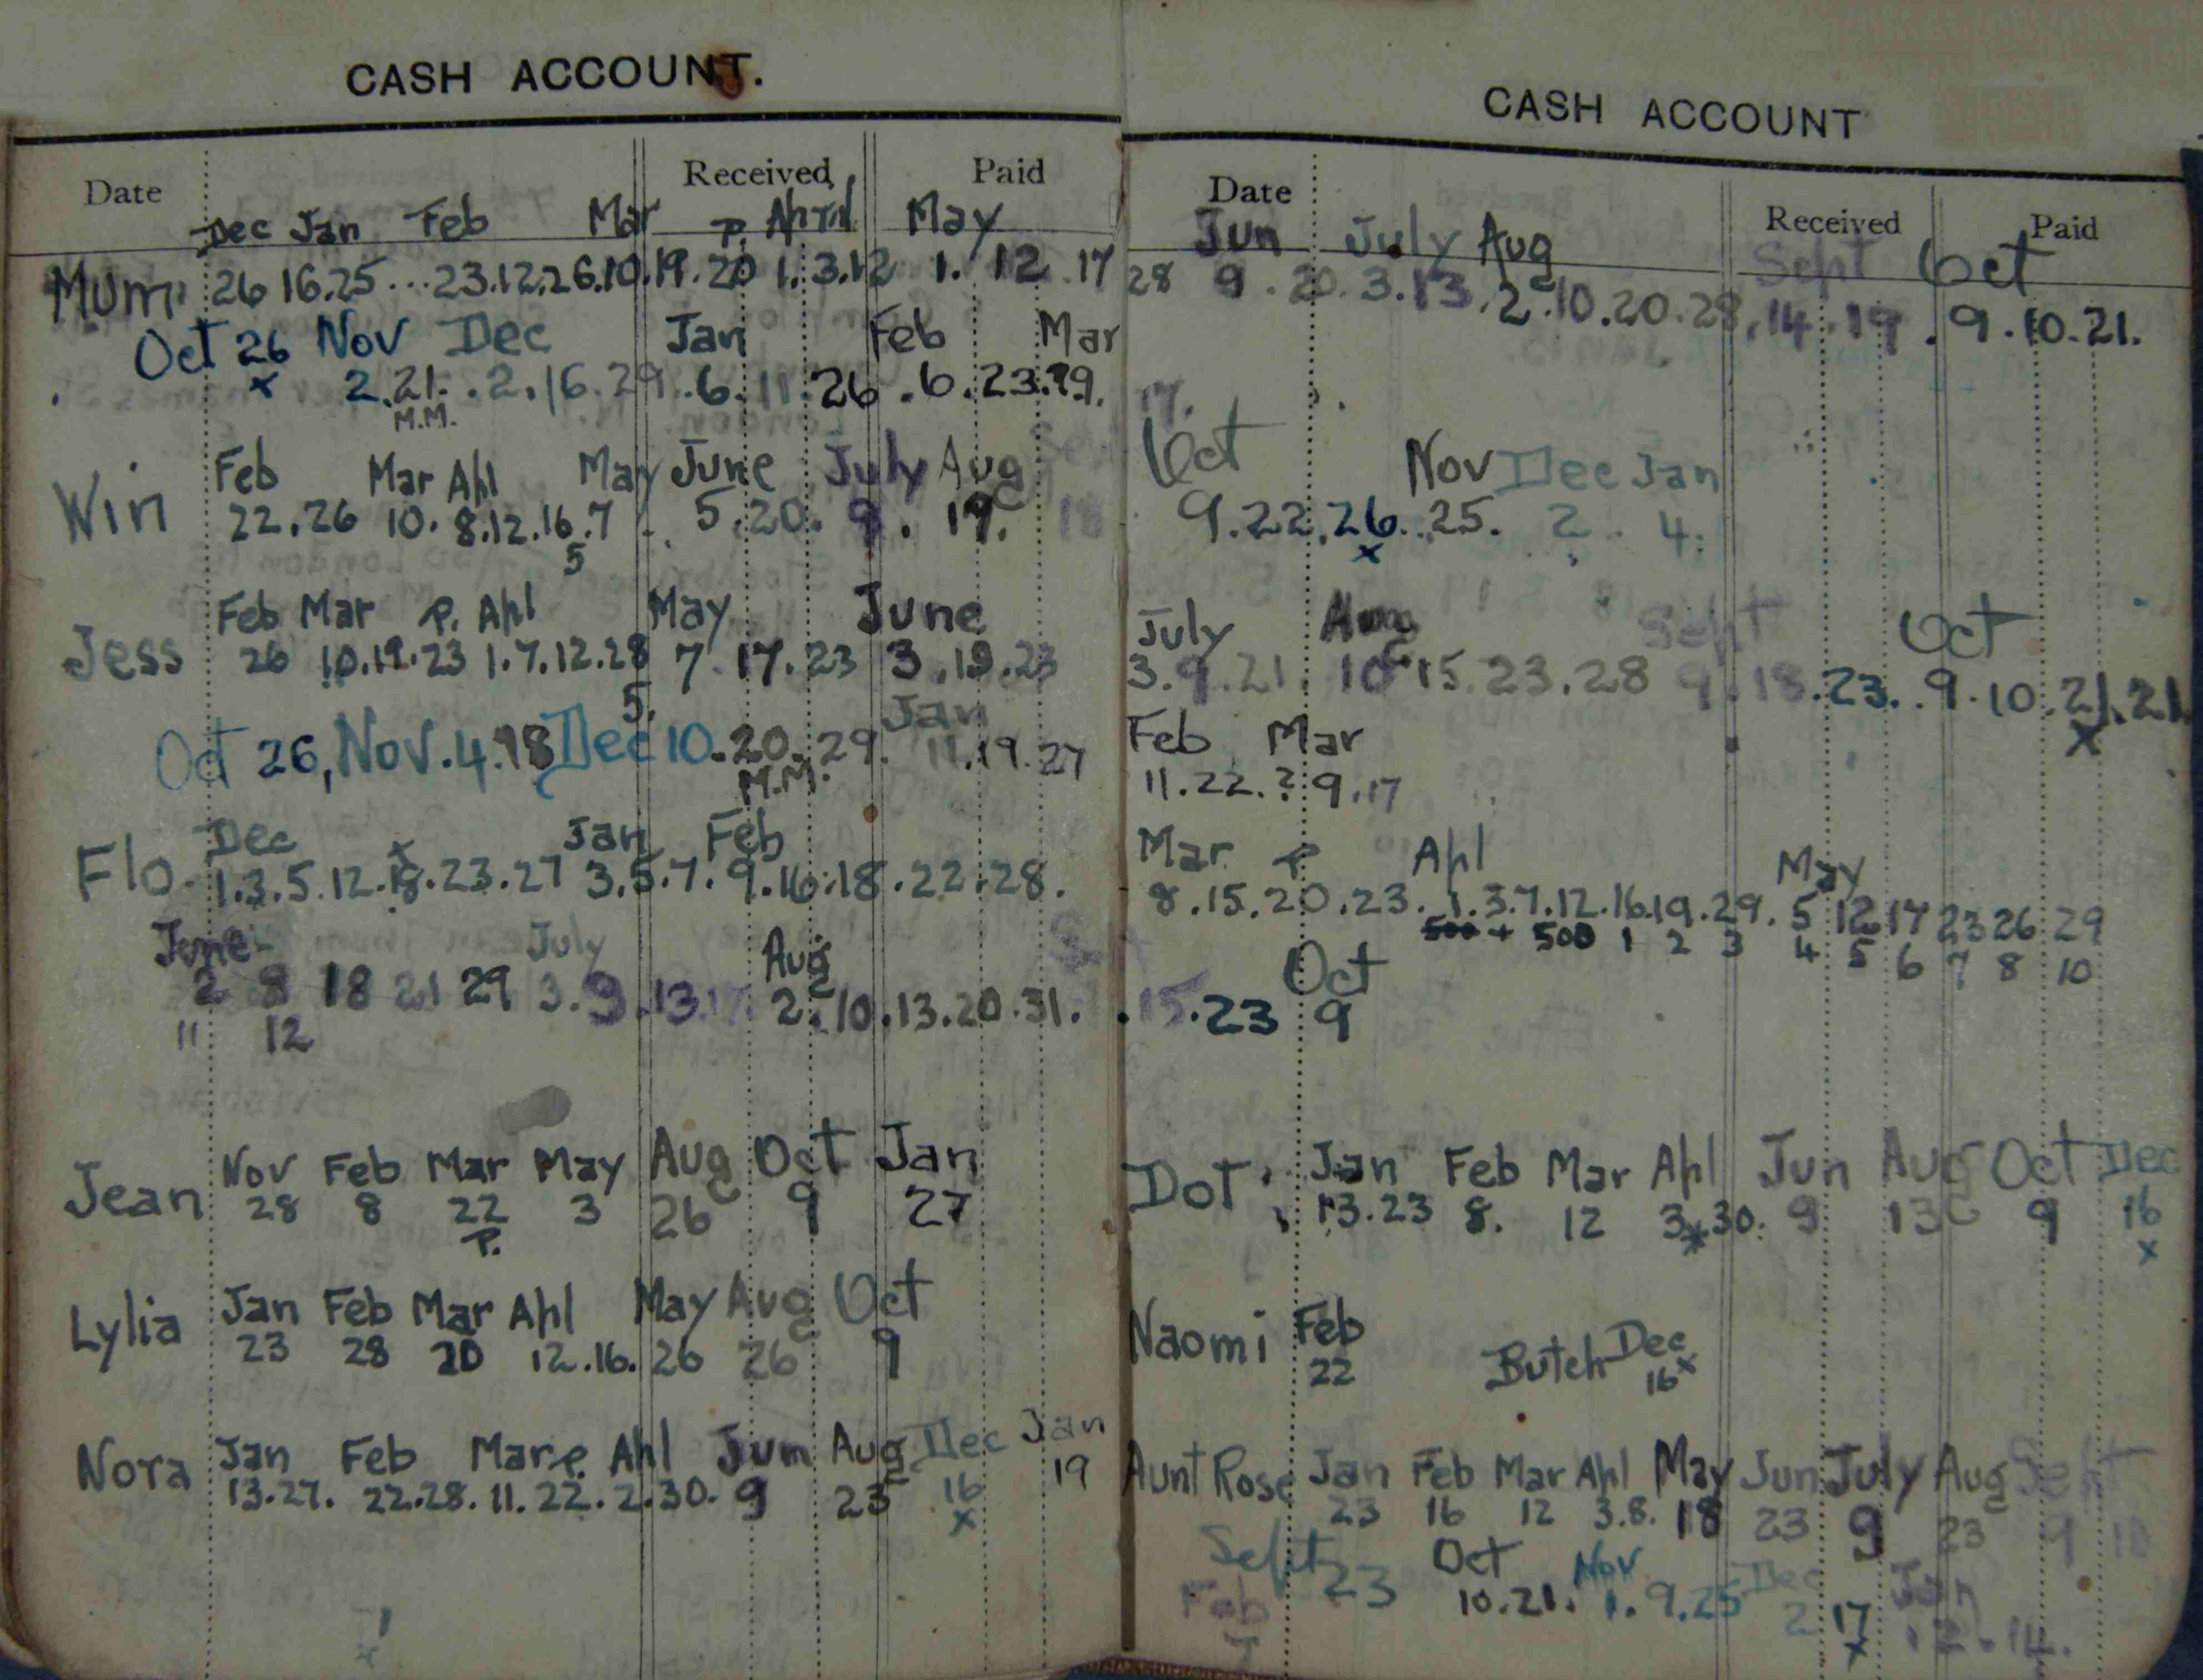 CASH ACCOUNT.
Date Received Paid
Dec Jan Feb Mar P. April May
Mum 26 16.25...23.12.26.10.19.20 1.3.12 1.12.17
Oct 26 Nov Dec Jan Feb Mar
x 2.21..2.16.29..6.11.26.6.23.?9.
M.M.
Feb Mar Apl May June July Aug Sept
Win 22.26 10.8.12.16.7 5.20.9.19. 18
5
Feb Mar P. Apl May June
Jess 26 10.19.23 1.7.12.28 7 17.23 3.19.23
5.
Jan
Oct 26, Nov.4.18 Dec 10.20.29. 11.19.27
M.M.
Dec x Jan Feb
Flo. 1.3.5.12.18.23.27 3.5.7.9.16.18.22.28.
June July Aug Sept
2 8 18 21 29 3.9.13.17 2.10.13.20.31.
11 12
Nov Feb Mar May Aug Oct Jan
Jean 28 8 22 3 26 9 27
P.
Jan Feb Mar Apl May Aug Oct
Lylia 23 28 20 12.16.26 26 9
Jan Feb Mar P. Apl Jun Aug Dec Jan
Nora 13.27. 22.28.11.22.2.30.9 23 16 19
x
CASH ACCOUNT
Date Received Paid
Jun July Aug Sept Oct
28 9.20.3.13.2.10.20.28.14.19.9.10.21.
17.
Oct Nov Dec Jan
9.22.26..25. 2. 4.
x
July Aug Sept Oct
3.9.21. 10.15.23.28 9.18.23..9.10.21.21
x
Feb Mar
11.22.?.9.17
Mar P. Apl May
8.15.20.23.1.3.7.12.16.19.29.5 12 17 23 26 29
500 + 500 1 2 3 4 5 6 7 8 10
Oct
.15.23 9
Jan Feb Mar Apl Jun Aug Oct Dec
Dot 13.23 8. 12 3.30. 9 13 9 16
* x
Naomi Feb Butch Dec
22 16x
Aunt Rose Jan Feb Mar Apl May Jun July Aug Sept
23 16 12 3.8. 18 23 9 23 9 18
Sept 23 Oct Nov Dec Jan
10.21. 1.9.25 2 17 .2.14.
x
Feb